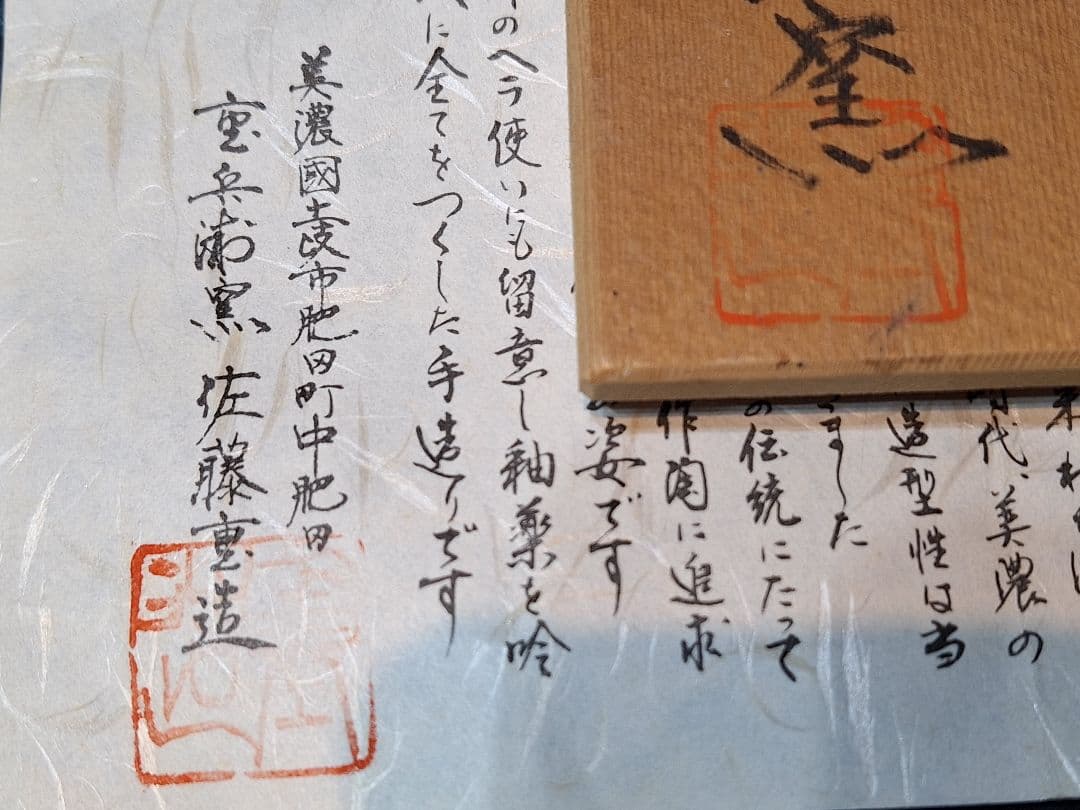 窯
来
時代、美濃の
造型性は当
ました
の伝統にたって
作陶に追求
姿です
のヘラ使いにも留意し釉薬を吟
に全てをつくした手造りです
美濃國土岐市肥田町中肥田
重兵衛窯 佐藤重造